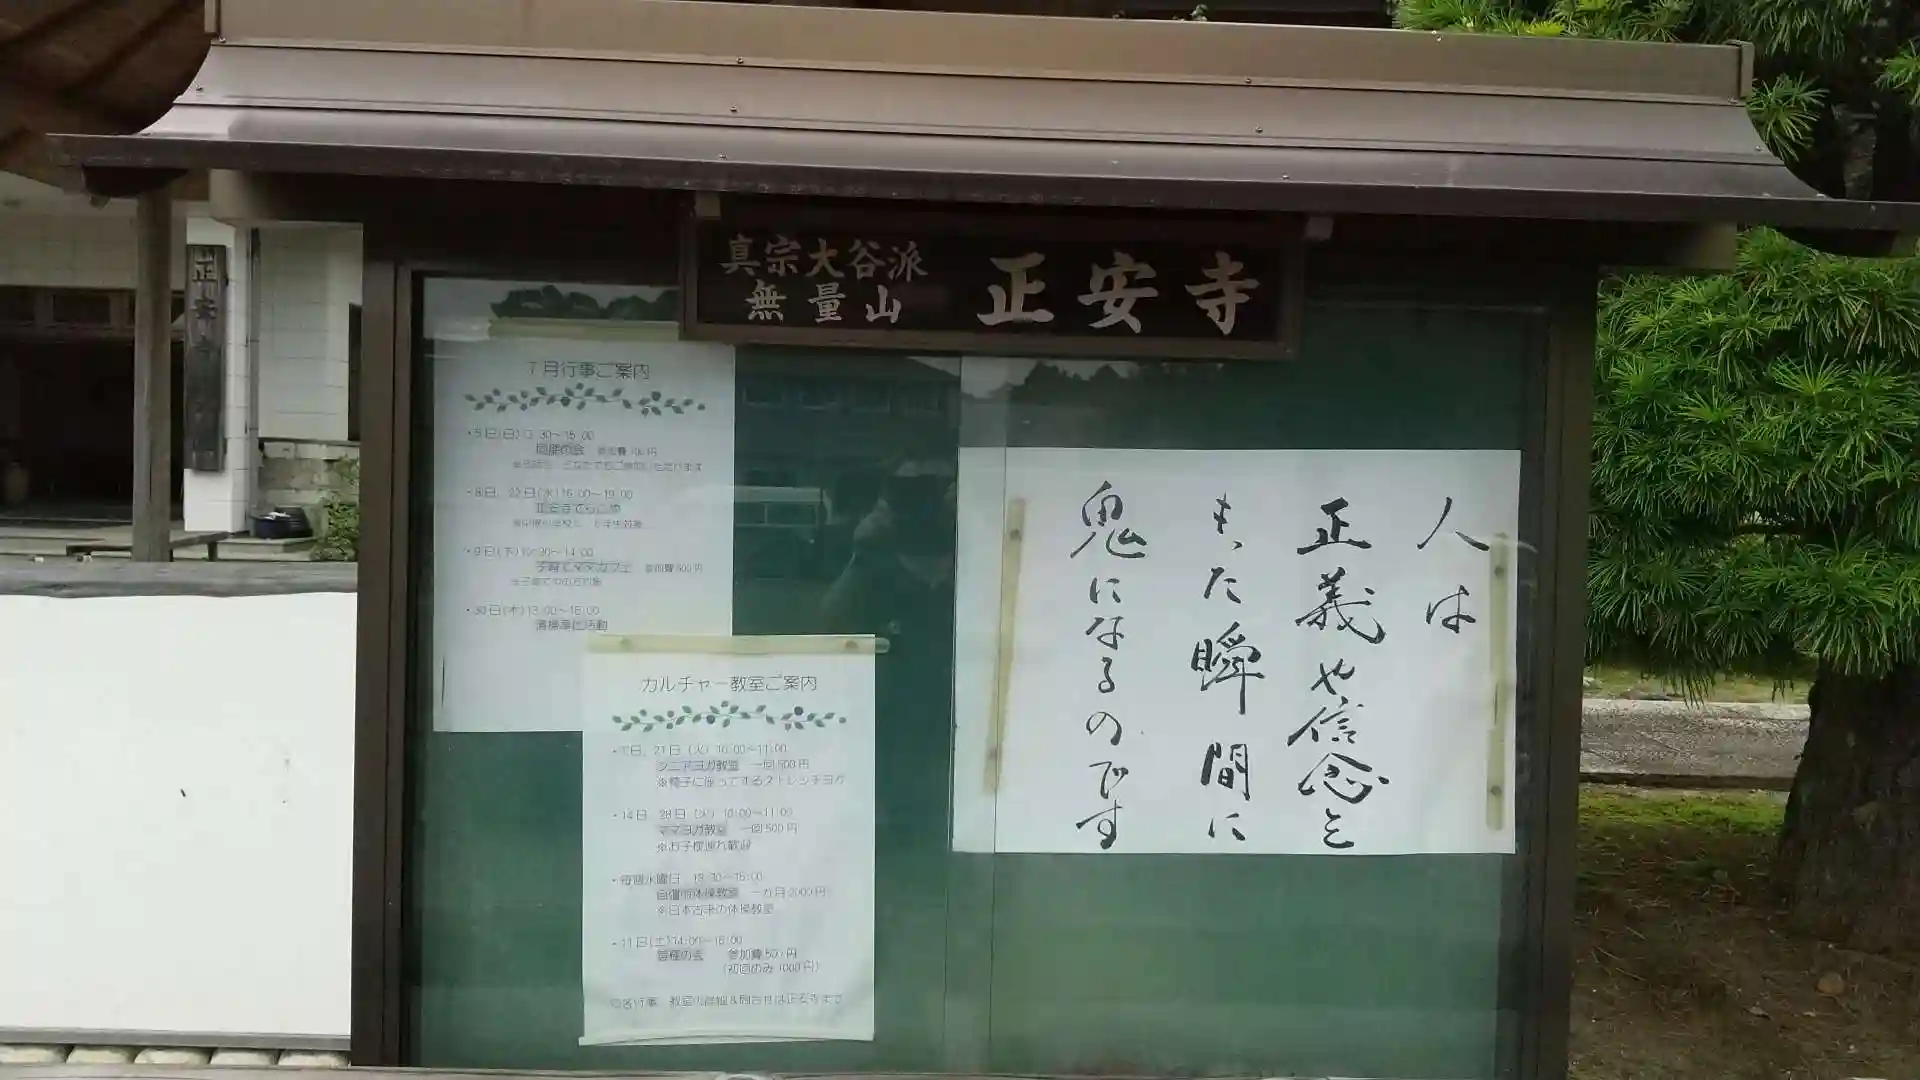 真宗大谷派
無量山
正安寺
正安寺
7月行事ご案内
・5日(日)
・8日、22日(水)16:00～19:00
・9日(木)10:30～14:00
子育てママカフェ 参加費
・30日(木)13:00～15:00
清掃奉仕活動
カルチャー教室ご案内
21日（火）10:00～11:00
シニアヨガ教室 一回500円
※椅子に座ってするストレッチヨガ
・14日、28日（火）10:00～11:00
ママヨガ教室 一回500円
※お子様連れ歓迎
・毎週水曜日
一カ月2000円
※日本古来の体操教室
・11日(土)14:00～16:00
参加費500円
（初回のみ1000円）
人は
正義や信念を
もった瞬間に
鬼になるのです